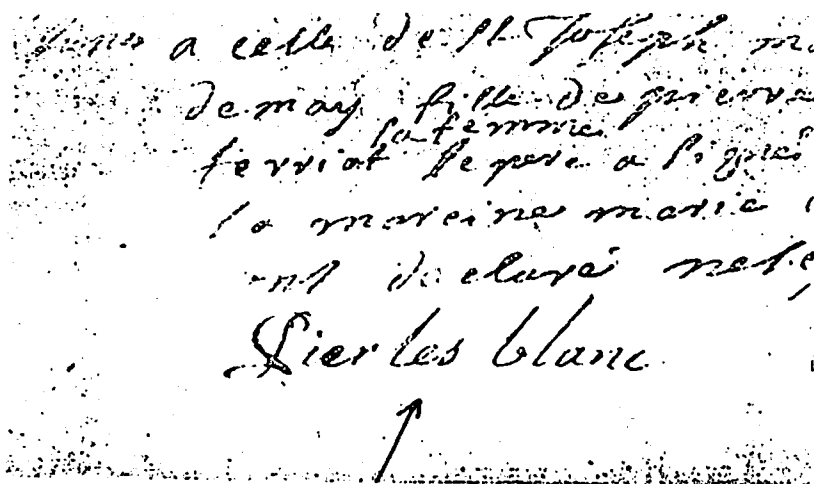 a celle de st Joseph
de may fille de pierre
sa femme
terriot le pere a signé
la mareine marie
ont declaré
Pier les blanc